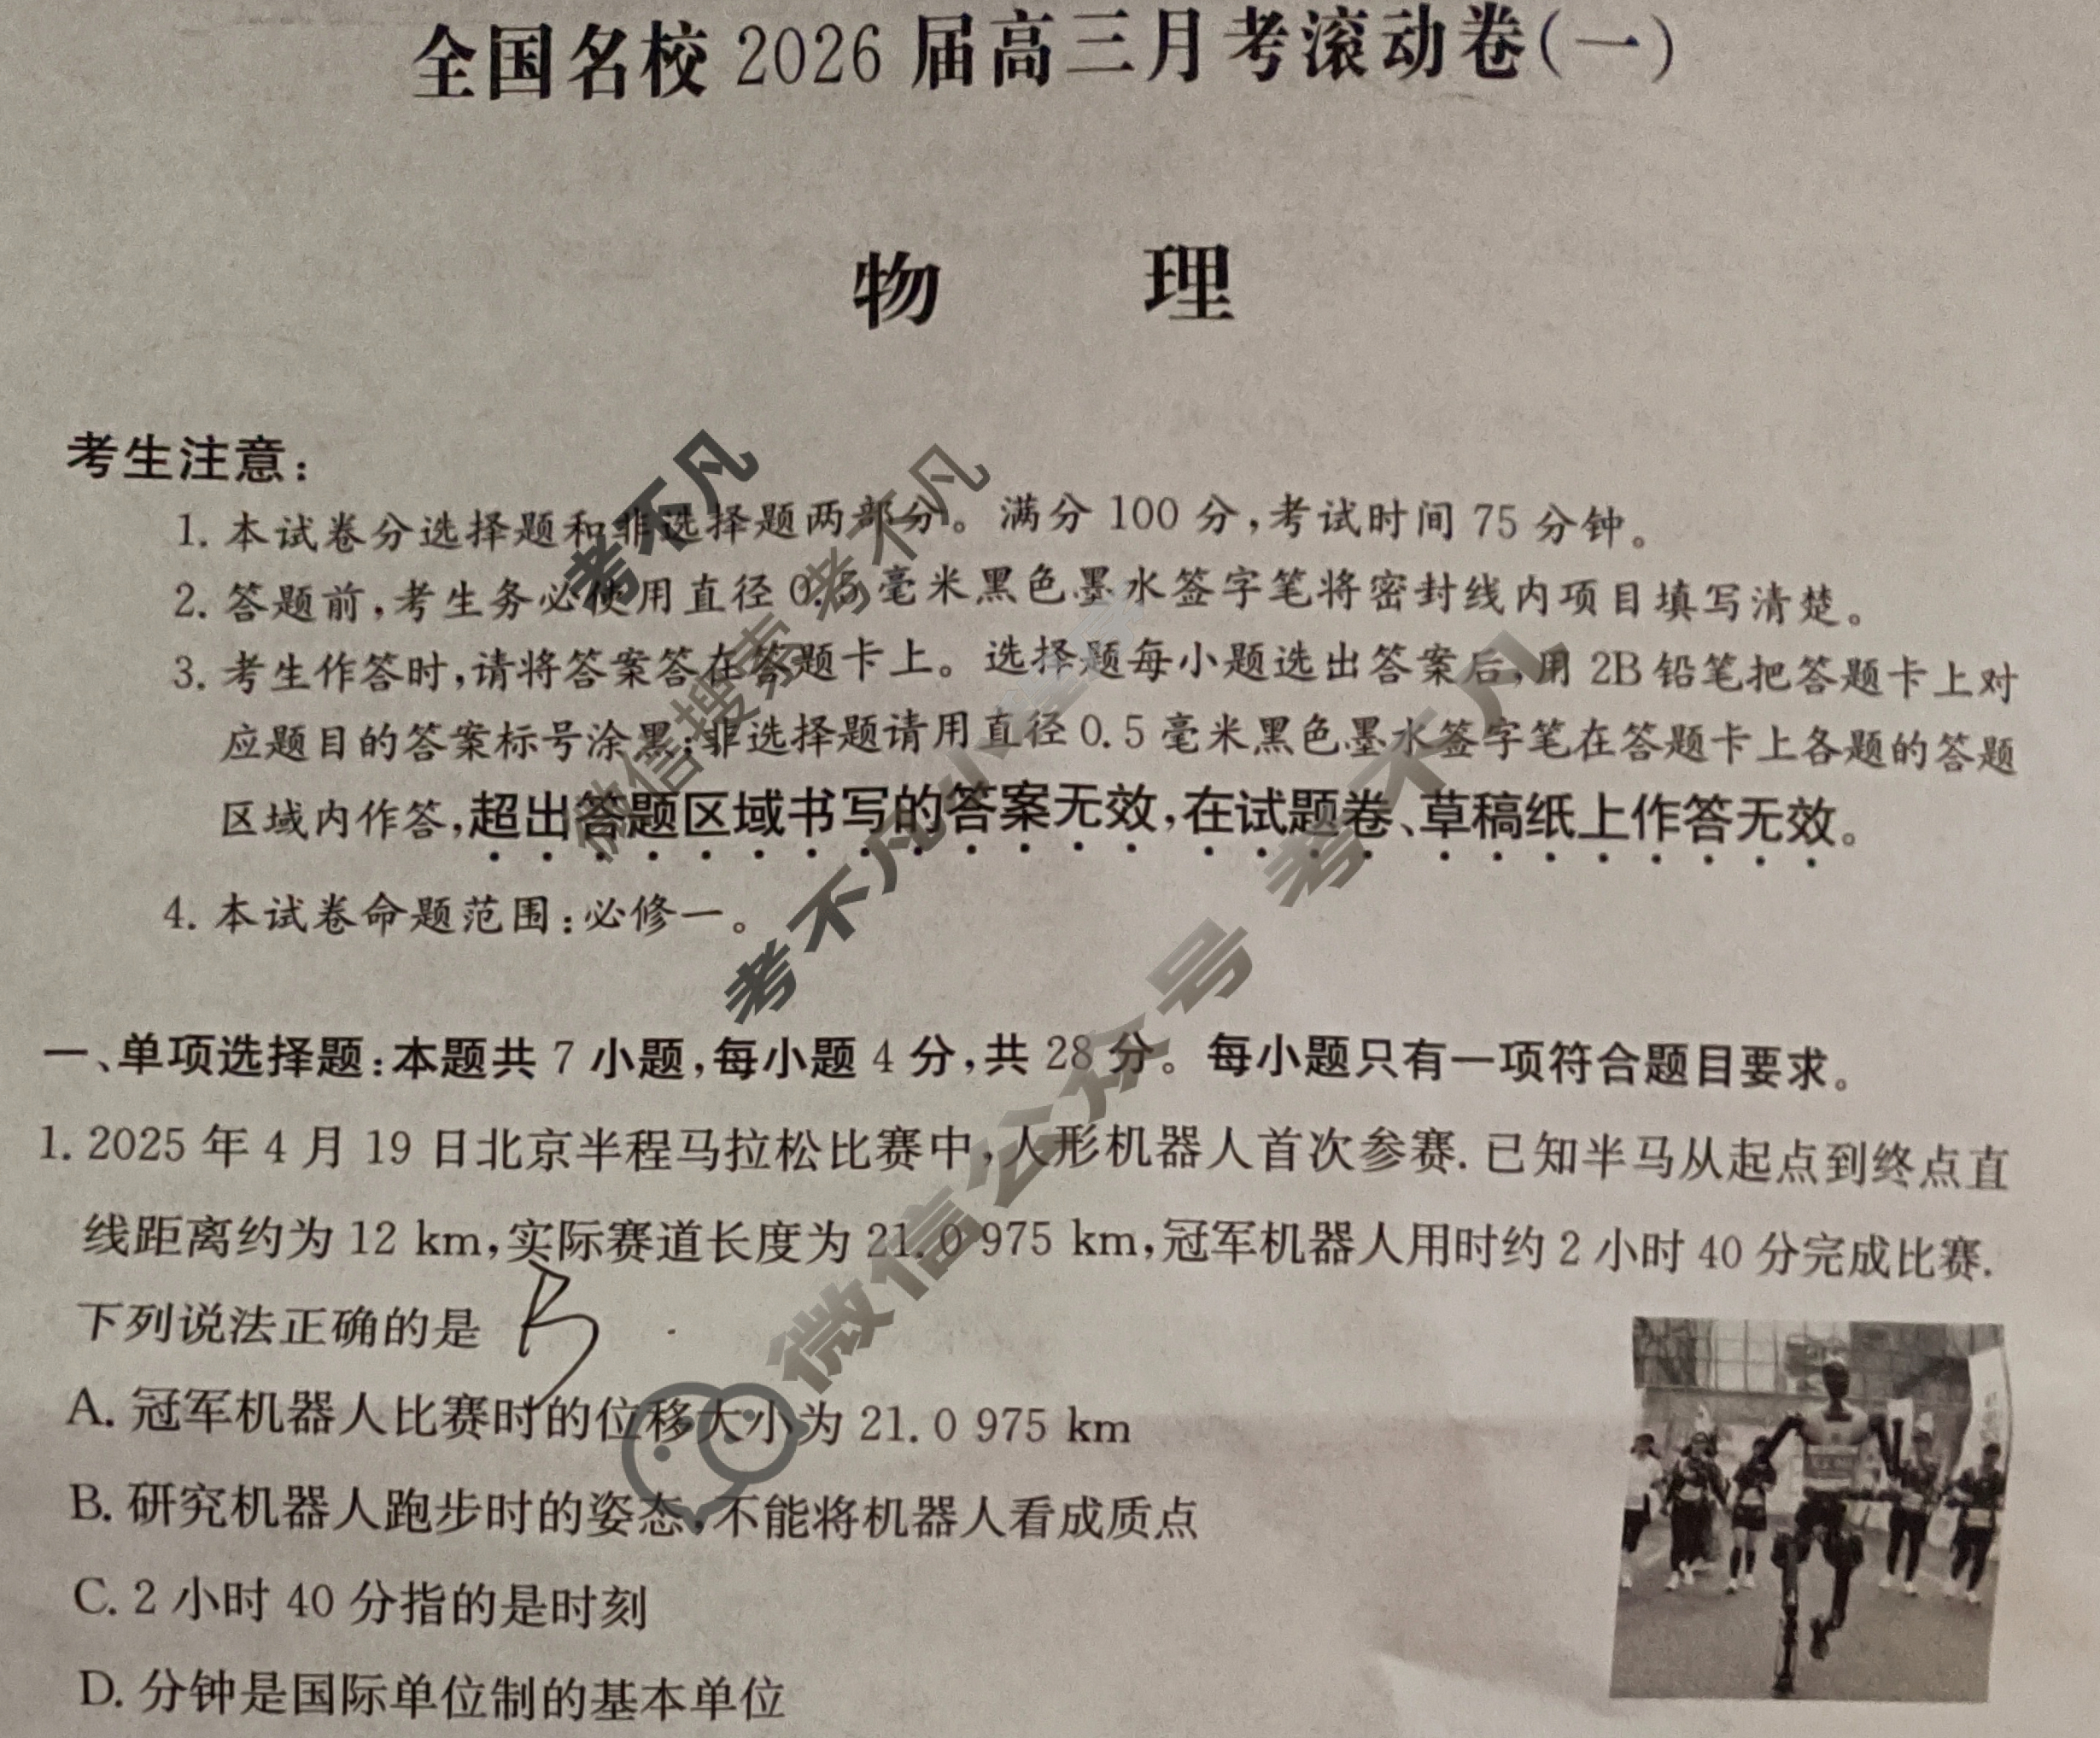 全国名校 2026 届高三月考滚动卷(一)
物 理
考生注意:
1. 本试卷分选择题和非选择题两部分。满分 100 分,考试时间 75 分钟。
2. 答题前,考生务必使用直径 0.5 毫米黑色墨水签字笔将密封线内项目填写清楚。
3. 考生作答时,请将答案答在答题卡上。选择题每小题选出答案后,用 2B 铅笔把答题卡上对
应题目的答案标号涂黑;非选择题请用直径 0.5 毫米黑色墨水签字笔在答题卡上各题的答题
区域内作答,超出答题区域书写的答案无效,在试题卷、草稿纸上作答无效。
4. 本试卷命题范围:必修一。
一、单项选择题:本题共 7 小题,每小题 4 分,共 28 分。每小题只有一项符合题目要求。
1. 2025 年 4 月 19 日北京半程马拉松比赛中,人形机器人首次参赛. 已知半马从起点到终点直
线距离约为 12 km,实际赛道长度为 21.0 975 km,冠军机器人用时约 2 小时 40 分完成比赛.
下列说法正确的是 B
A. 冠军机器人比赛时的位移大小为 21.0 975 km
B. 研究机器人跑步时的姿态,不能将机器人看成质点
C. 2 小时 40 分指的是时刻
D. 分钟是国际单位制的基本单位
考不凡
微信搜索 考不凡
考不凡
微信公众号 考不凡